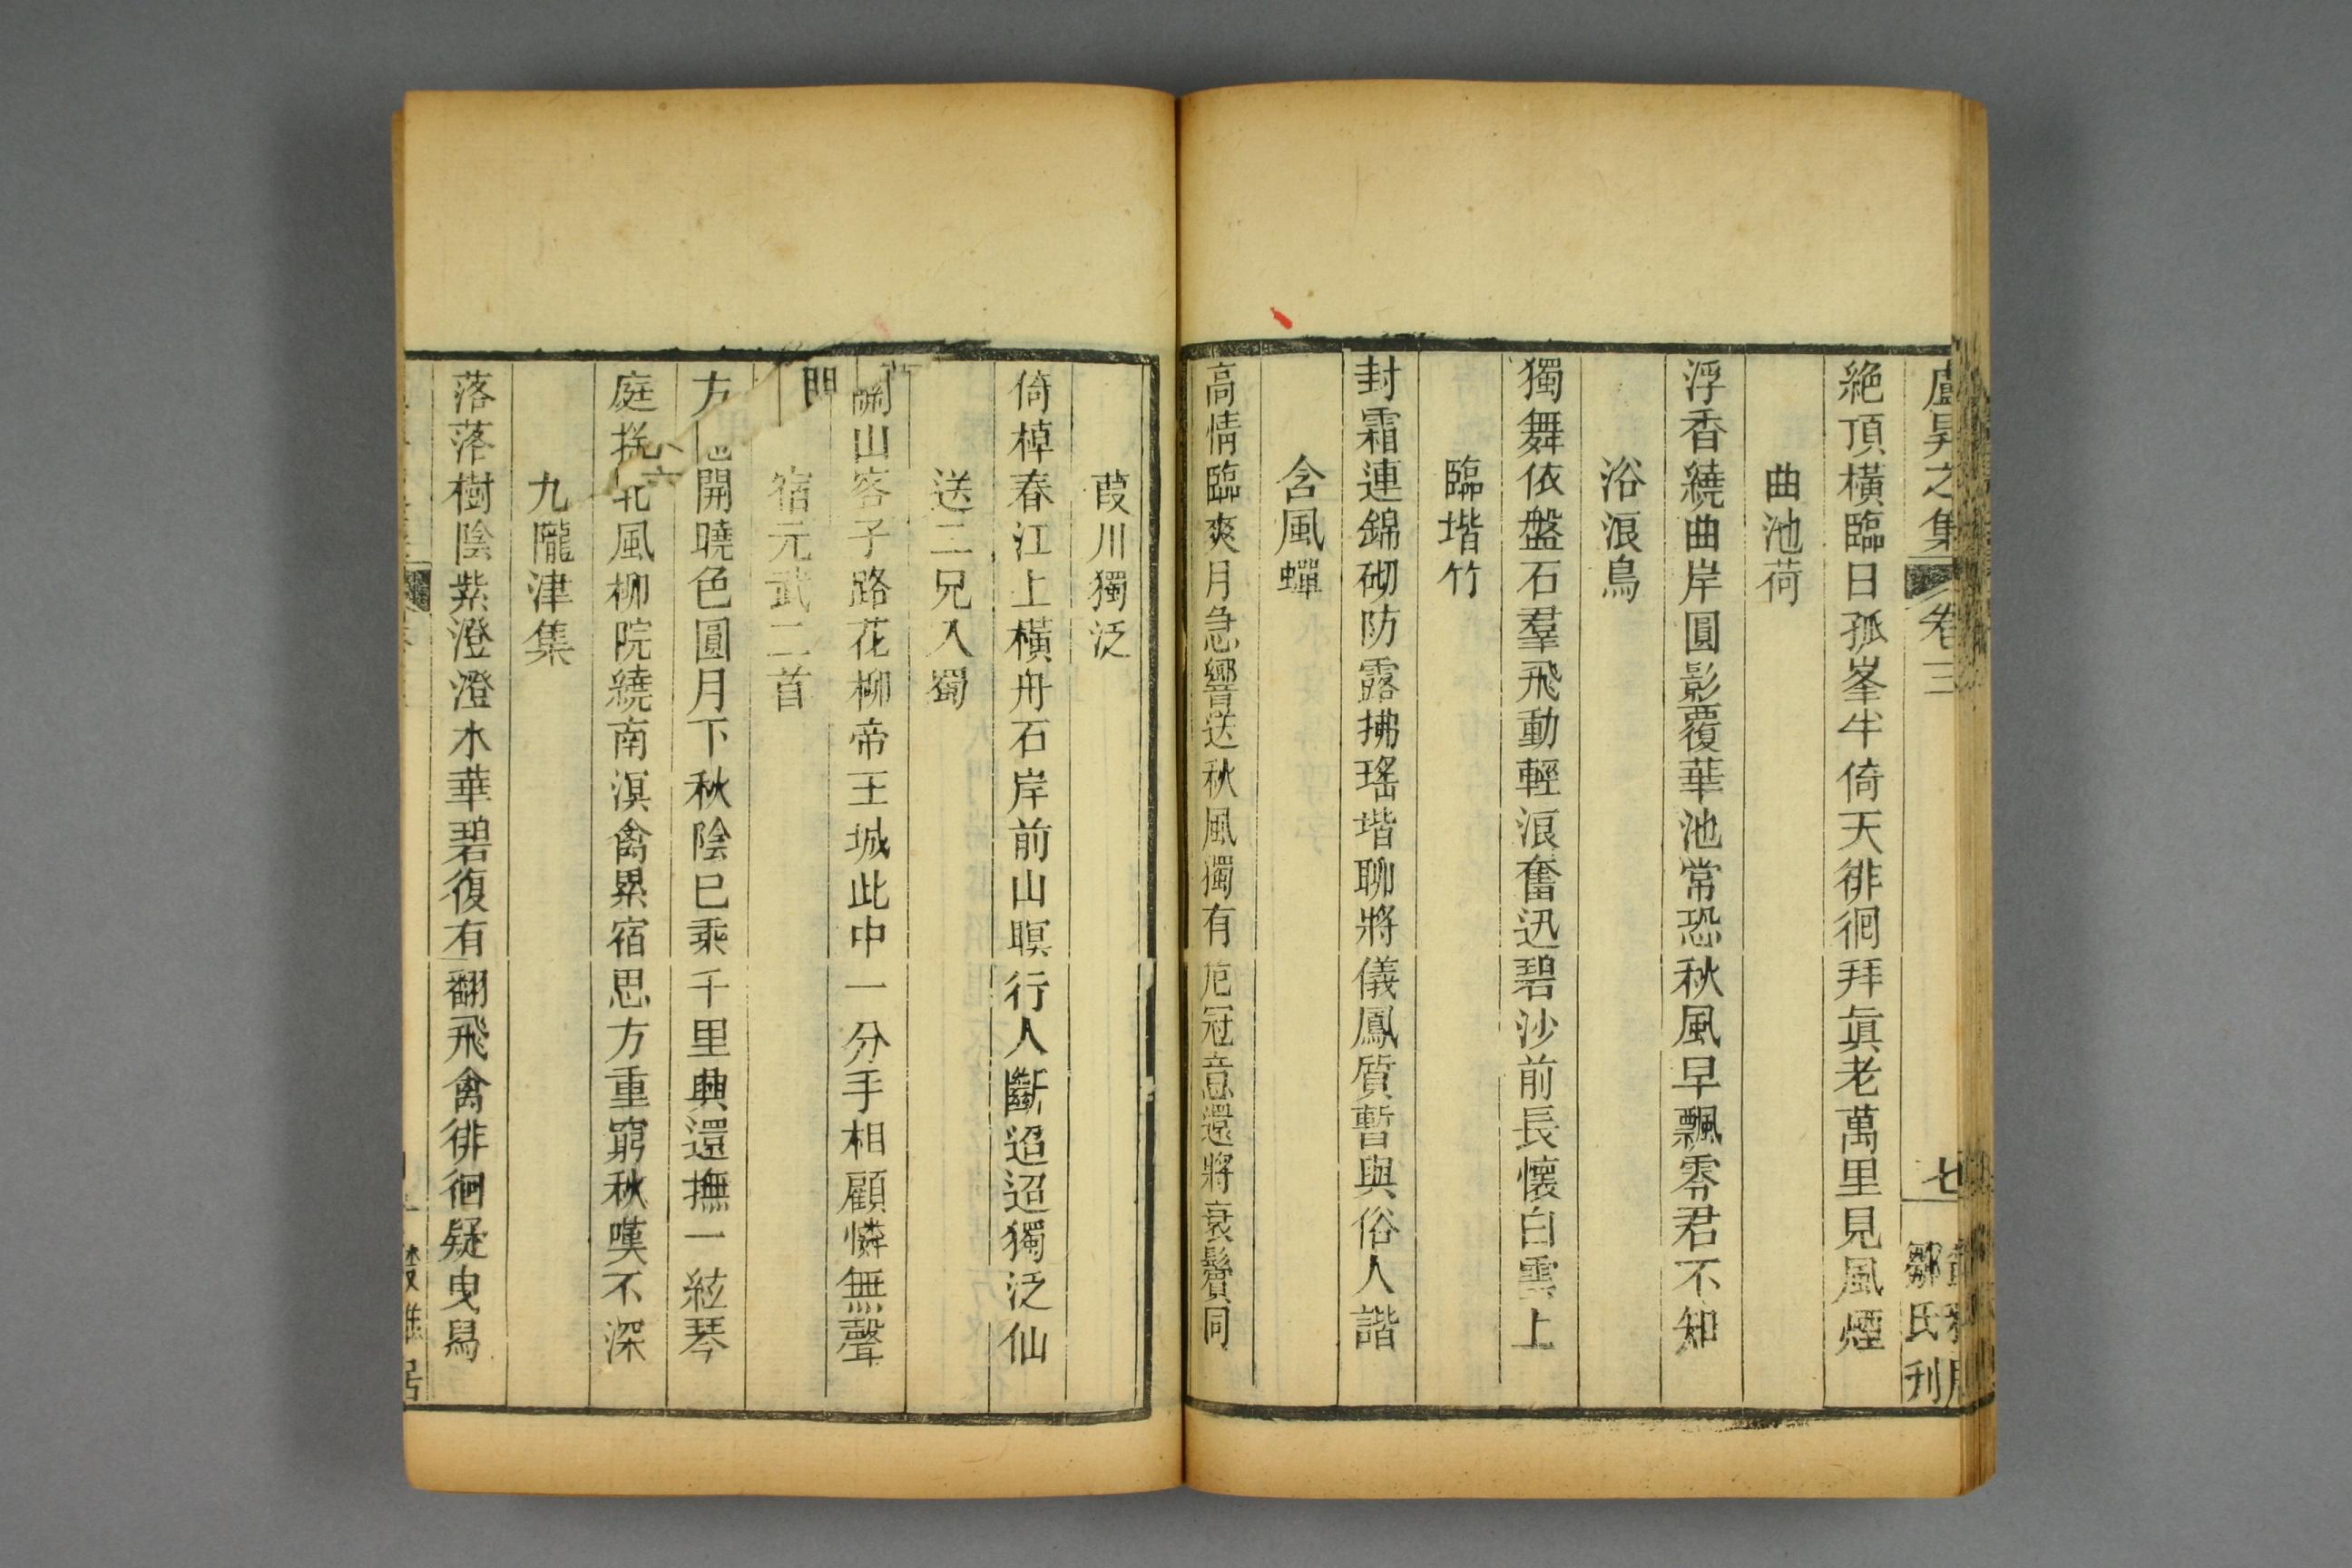 盧昇之集 卷三 七
鄒氏刊
絶頂橫臨日孤峯半倚天徘徊拜眞老萬里見風煙
曲池荷
浮香繞曲岸圓影覆華池常恐秋風早飄零君不知
浴浪鳥
獨舞依盤石羣飛動輕浪奮迅碧沙前長懷白雲上
臨堦竹
封霜連錦砌防露拂瑤堦聊將儀鳳質暫與俗人諧
含風蟬
高情臨爽月急響送秋風獨有危冠意還將衰鬢同
葭川獨泛
倚棹春江上橫舟石岸前山暝行人斷迢迢獨泛仙
送二兄入蜀
關山客子路花柳帝王城此中一分手相顧憐無聲
宿元武二首
方池開曉色圓月下秋陰已乘千里興還撫一絃琴
庭搖北風柳院繞南溟禽累宿思方重窮秋嘆不深
九隴津集
落落樹陰紫澄澄水華碧復有翻飛禽徘徊疑曳舄
叢雅居